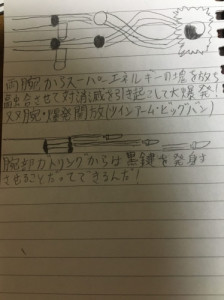 両腕からスーパーエネルギーの塊を放ち
融合させて対消滅を引き起こして大爆発
双腕・爆発開放(ツインアーム・ビッグバン)
腕部カトリングからは黒鍵を発射す
ることだってできるんだ!